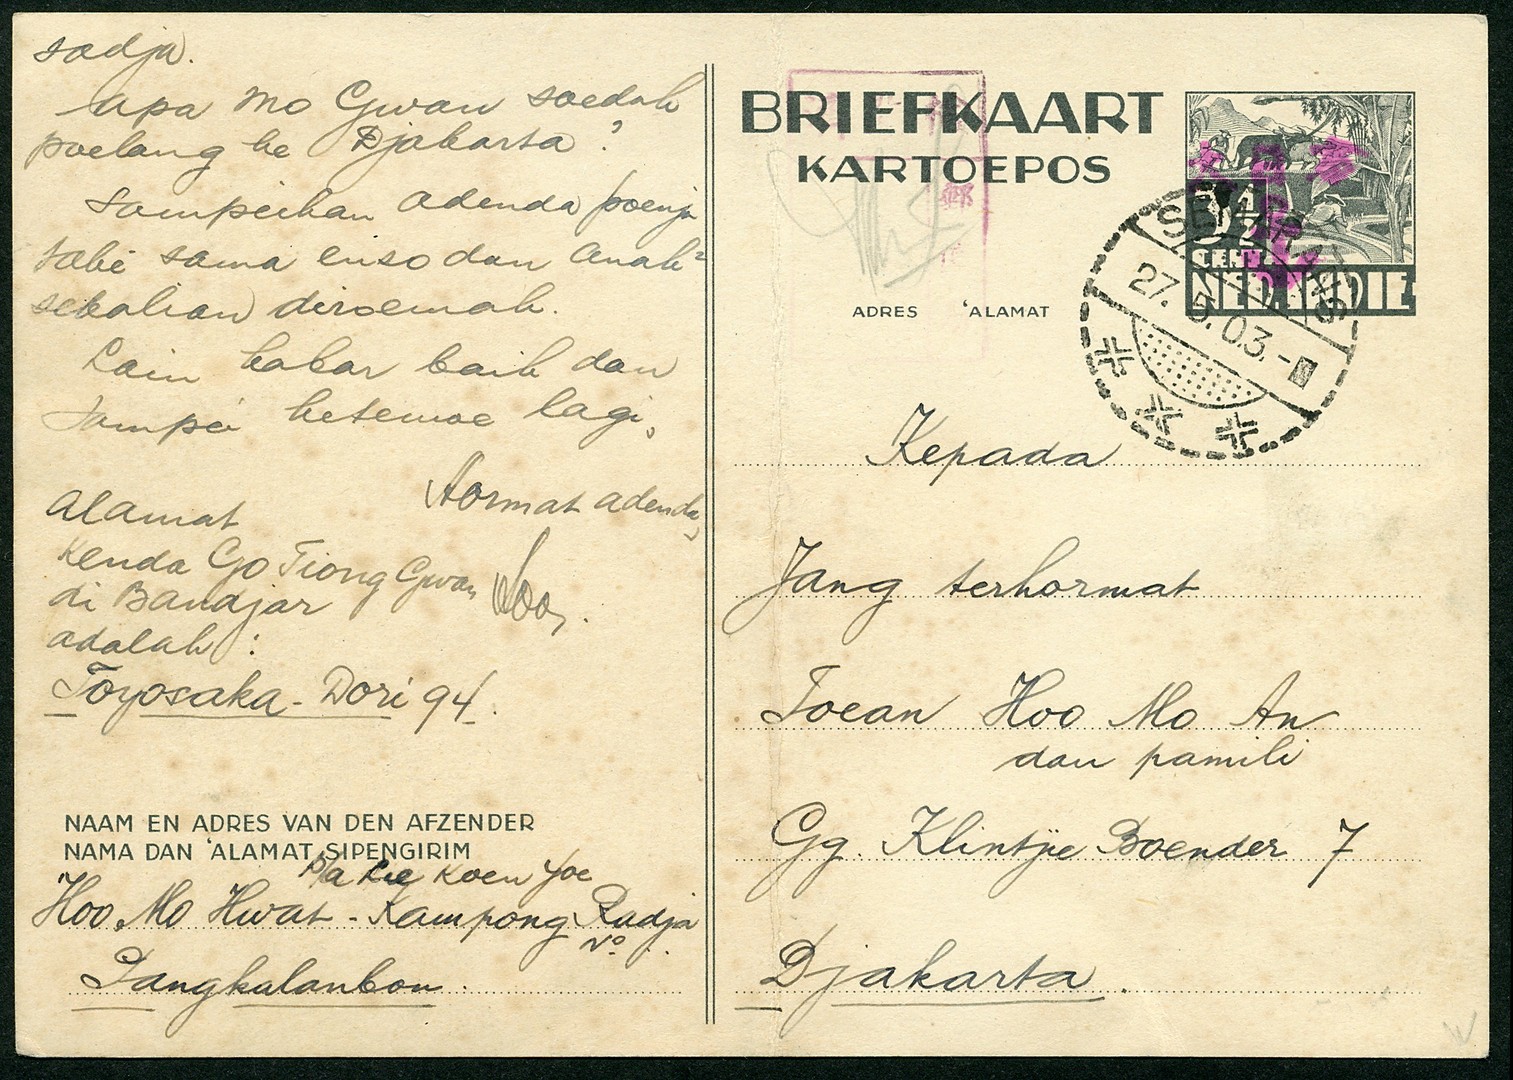 sadja.
apa Mo Gwan soedah
poelang ke Djakarta?
Sampeikan adenda poenja
tabé sama enso dan anak²
sekalian diroemah.
Lain kabar baik dan
sampei ketemoe lagi,
Hormat adenda,
Hoo,.
Alamat
Kenda Go Tiong Gwan
di Bandjar
adalah :
Toyosaka-Dori 94.
NAAM EN ADRES VAN DEN AFZENDER
NAMA DAN 'ALAMAT SIPENGIRIM
p/a Lie Koen Joe
Hoo Mo Hwat - Kampong Radja
No
Pangkalanbon.
BRIEFKAART
KARTOEPOS
ADRES 'ALAMAT
3½
CENT
NED. INDIE
SEMARANG
27.5.03.-
Kepada
Jang terhormat
Toean Hoo Mo An
dan pamili
Gg. Klintjie Boender 7
Djakarta.